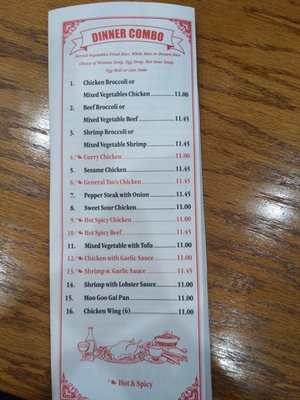 DINNER COMBO
Served Vegetables Fried Rice, White Rice or Brown Rice
Choice of Wonton Soup, Egg Drop, Hot Sour Soup,
Egg Roll or Can Soda
1. Chicken Broccoli or
Mixed Vegetables Chicken 11.00
2. Beef Broccoli or
Mixed Vegetable Beef 11.45
3. Shrimp Broccoli or
Mixed Vegetable Shrimp 11.45
4. Curry Chicken 11.00
5. Sesame Chicken 11.45
6. General Tso's Chicken 11.45
7. Pepper Steak with Onion 11.45
8. Sweet Sour Chicken 11.00
9. Hot Spicy Chicken 11.00
10. Hot Spicy Beef 11.45
11. Mixed Vegetable with Tofu 11.00
12. Chicken with Garlic Sauce 11.00
13. Shrimp w. Garlic Sauce 11.45
14. Shrimp with Lobster Sauce 11.00
15. Moo Goo Gai Pan 11.00
16. Chicken Wing (6) 11.00
Hot & Spicy